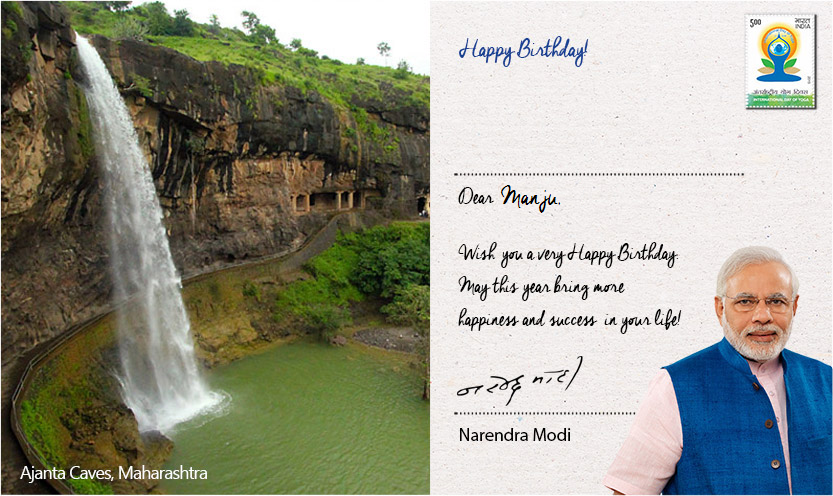 Happy Birthday!
5.00
भारत
INDIA
अंतर्राष्ट्रीय योग दिवस
INTERNATIONAL DAY OF YOGA
Dear Manju,
Wish you a very Happy Birthday.
May this year bring more
happiness and success in your life!
नरेन्द्र मोदी
Narendra Modi
Ajanta Caves, Maharashtra